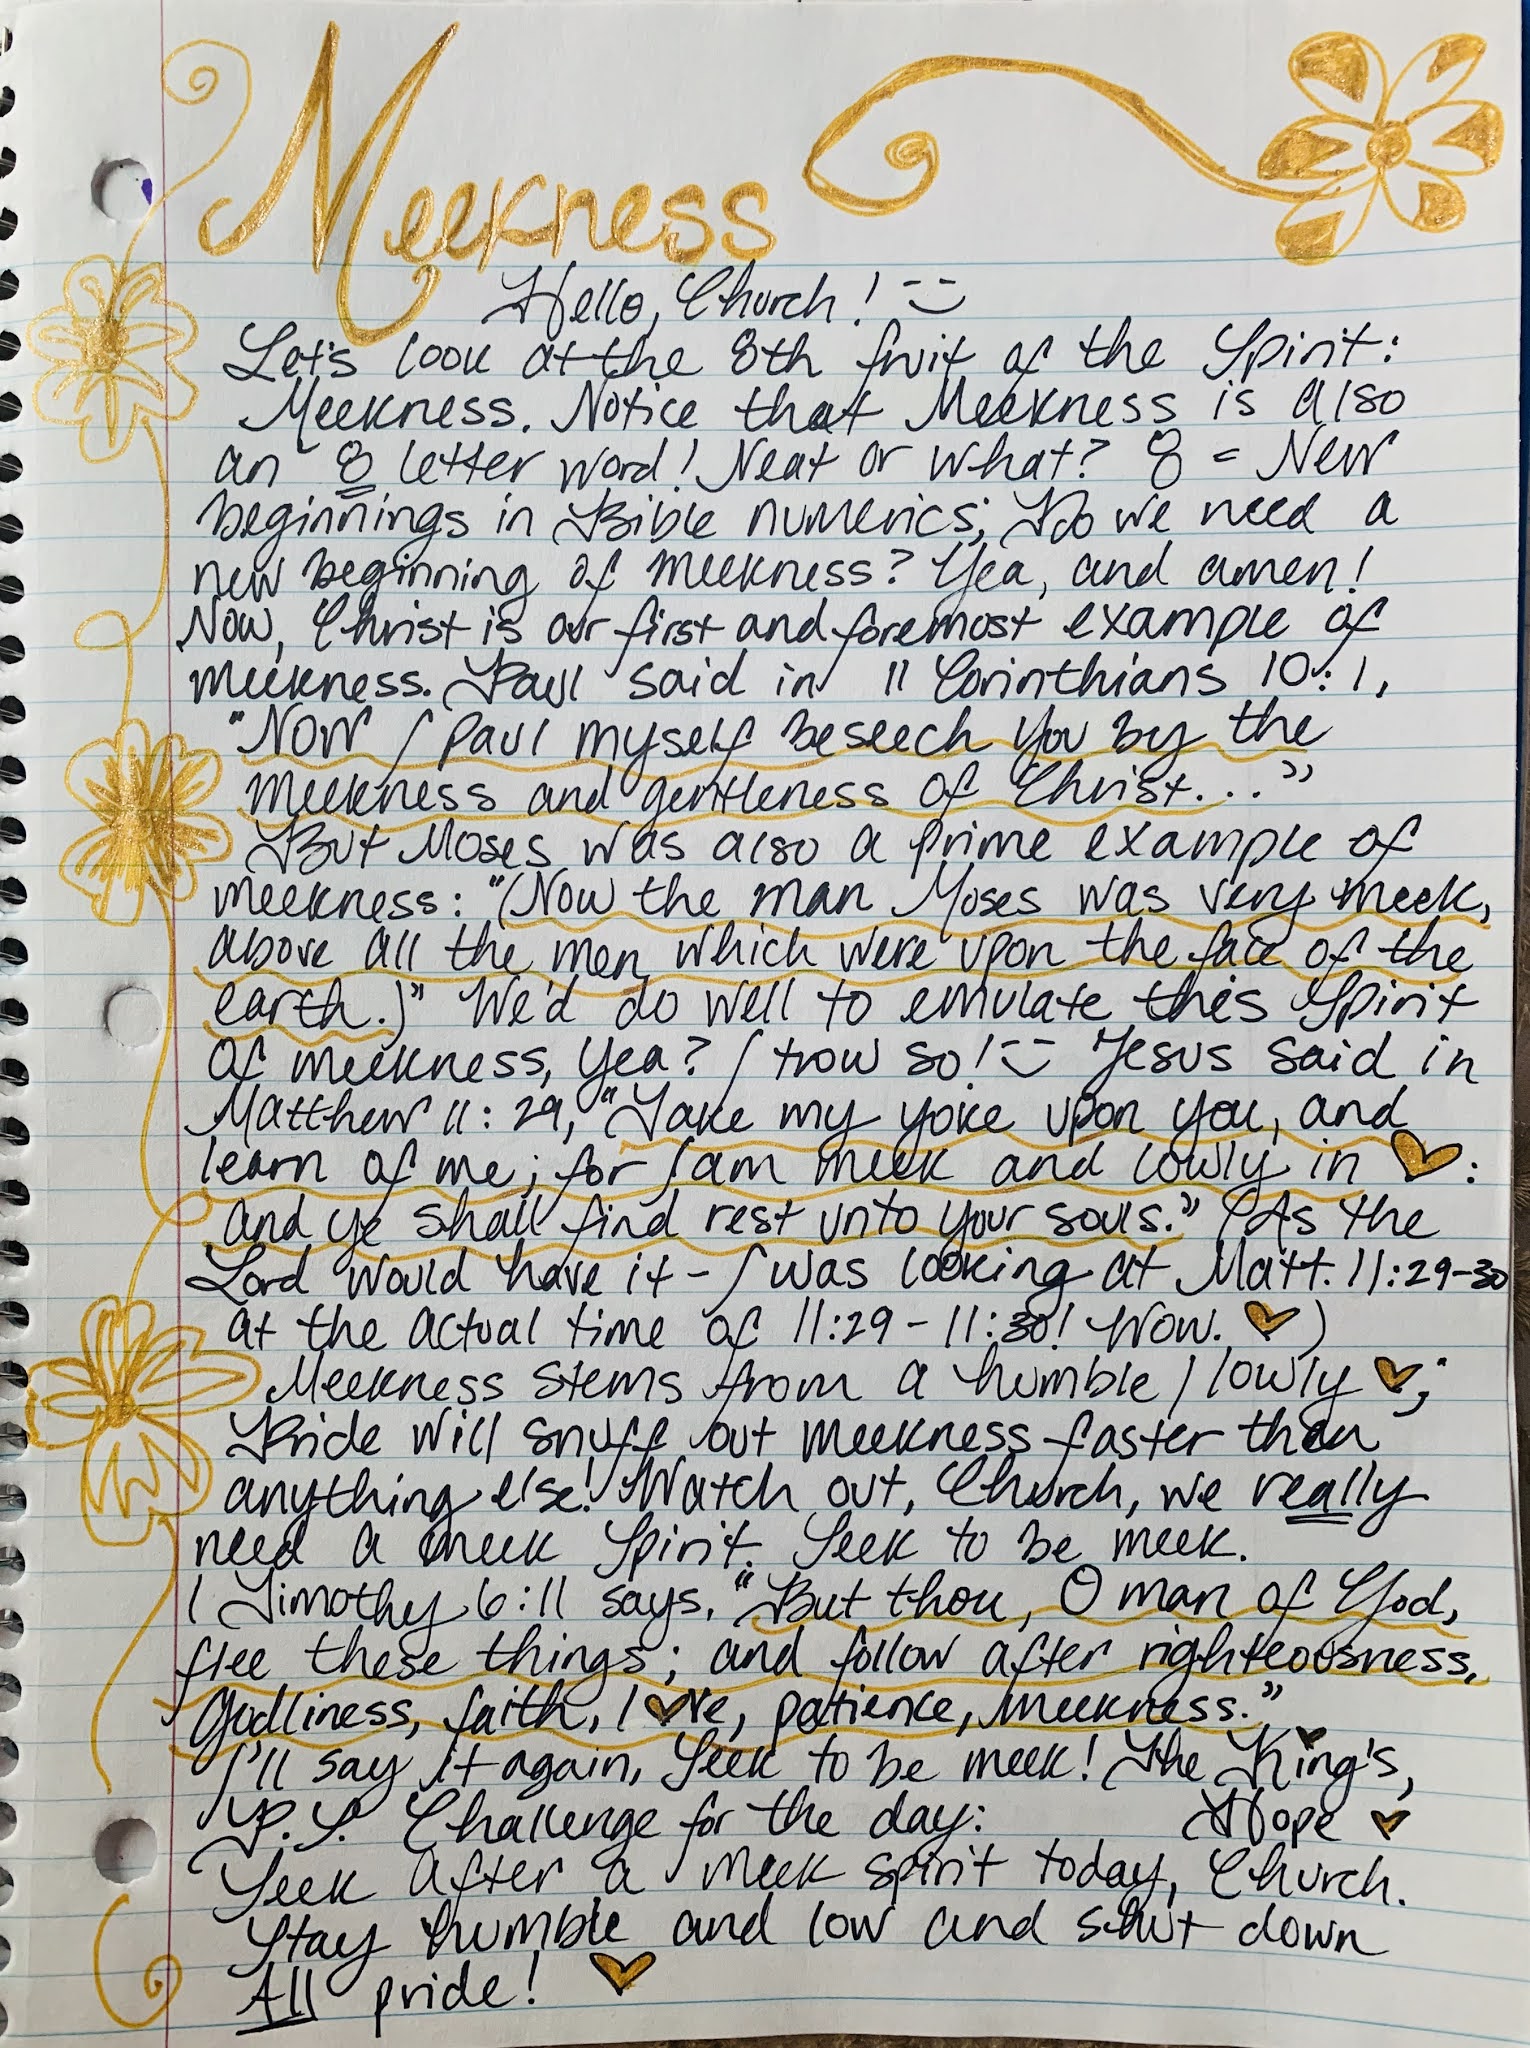 Meekness
Hello, Church! :)
Let's look at the 8th fruit of the Spirit:
Meekness. Notice that Meekness is also
an 8 letter word! Neat or what? 8 = New
beginnings in Bible numerics; Do we need a
new beginning of meekness? Yea, and amen!
Now, Christ is our first and foremost example of
meekness. Paul said in 11 Corinthians 10:1,
"Now I Paul myself beseech you by the
meekness and gentleness of Christ..."
But Moses was also a prime example of
meekness: "(Now the man Moses was very meek,
above all the men which were upon the face of the
earth.)" We'd do well to emulate this Spirit
of meekness, yea? I trow so! :) Jesus said in
Matthew 11:29, "Take my yoke upon you, and
learn of me; for I am meek and lowly in ♥:
and ye shall find rest unto your souls." (As the
Lord would have it - I was looking at Matt. 11:29-30
at the actual time of 11:29-11:30! Wow. ♥)
Meekness stems from a humble / lowly ♥;
Pride will snuff out meekness faster than
anything else! Watch out, Church, we really
need a meek Spirit. Seek to be meek.
1 Timothy 6:11 says, "But thou, O man of God,
flee these things; and follow after righteousness,
godliness, faith, l♥ve, patience, meekness."
I'll say it again, Seek to be meek! The King's,
P.S. Challenge for the day: Hope ♥
Seek after a meek spirit today, Church.
Stay humble and low and shut down
All pride! ♥